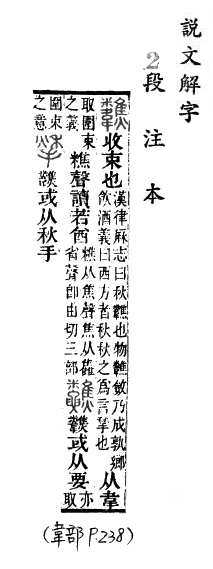 說文解字
2段注本
收束也
漢律厤志曰秋也物斂乃成孰鄉
飲酒義曰西方者秋秋之爲言揫也
从韋
取圍束
之義
樵聲讀若酋
樵从焦聲焦从雥
省聲卽由切三部
或从要
亦取
圍束
之意
或从秋手
(韋部 P.238)